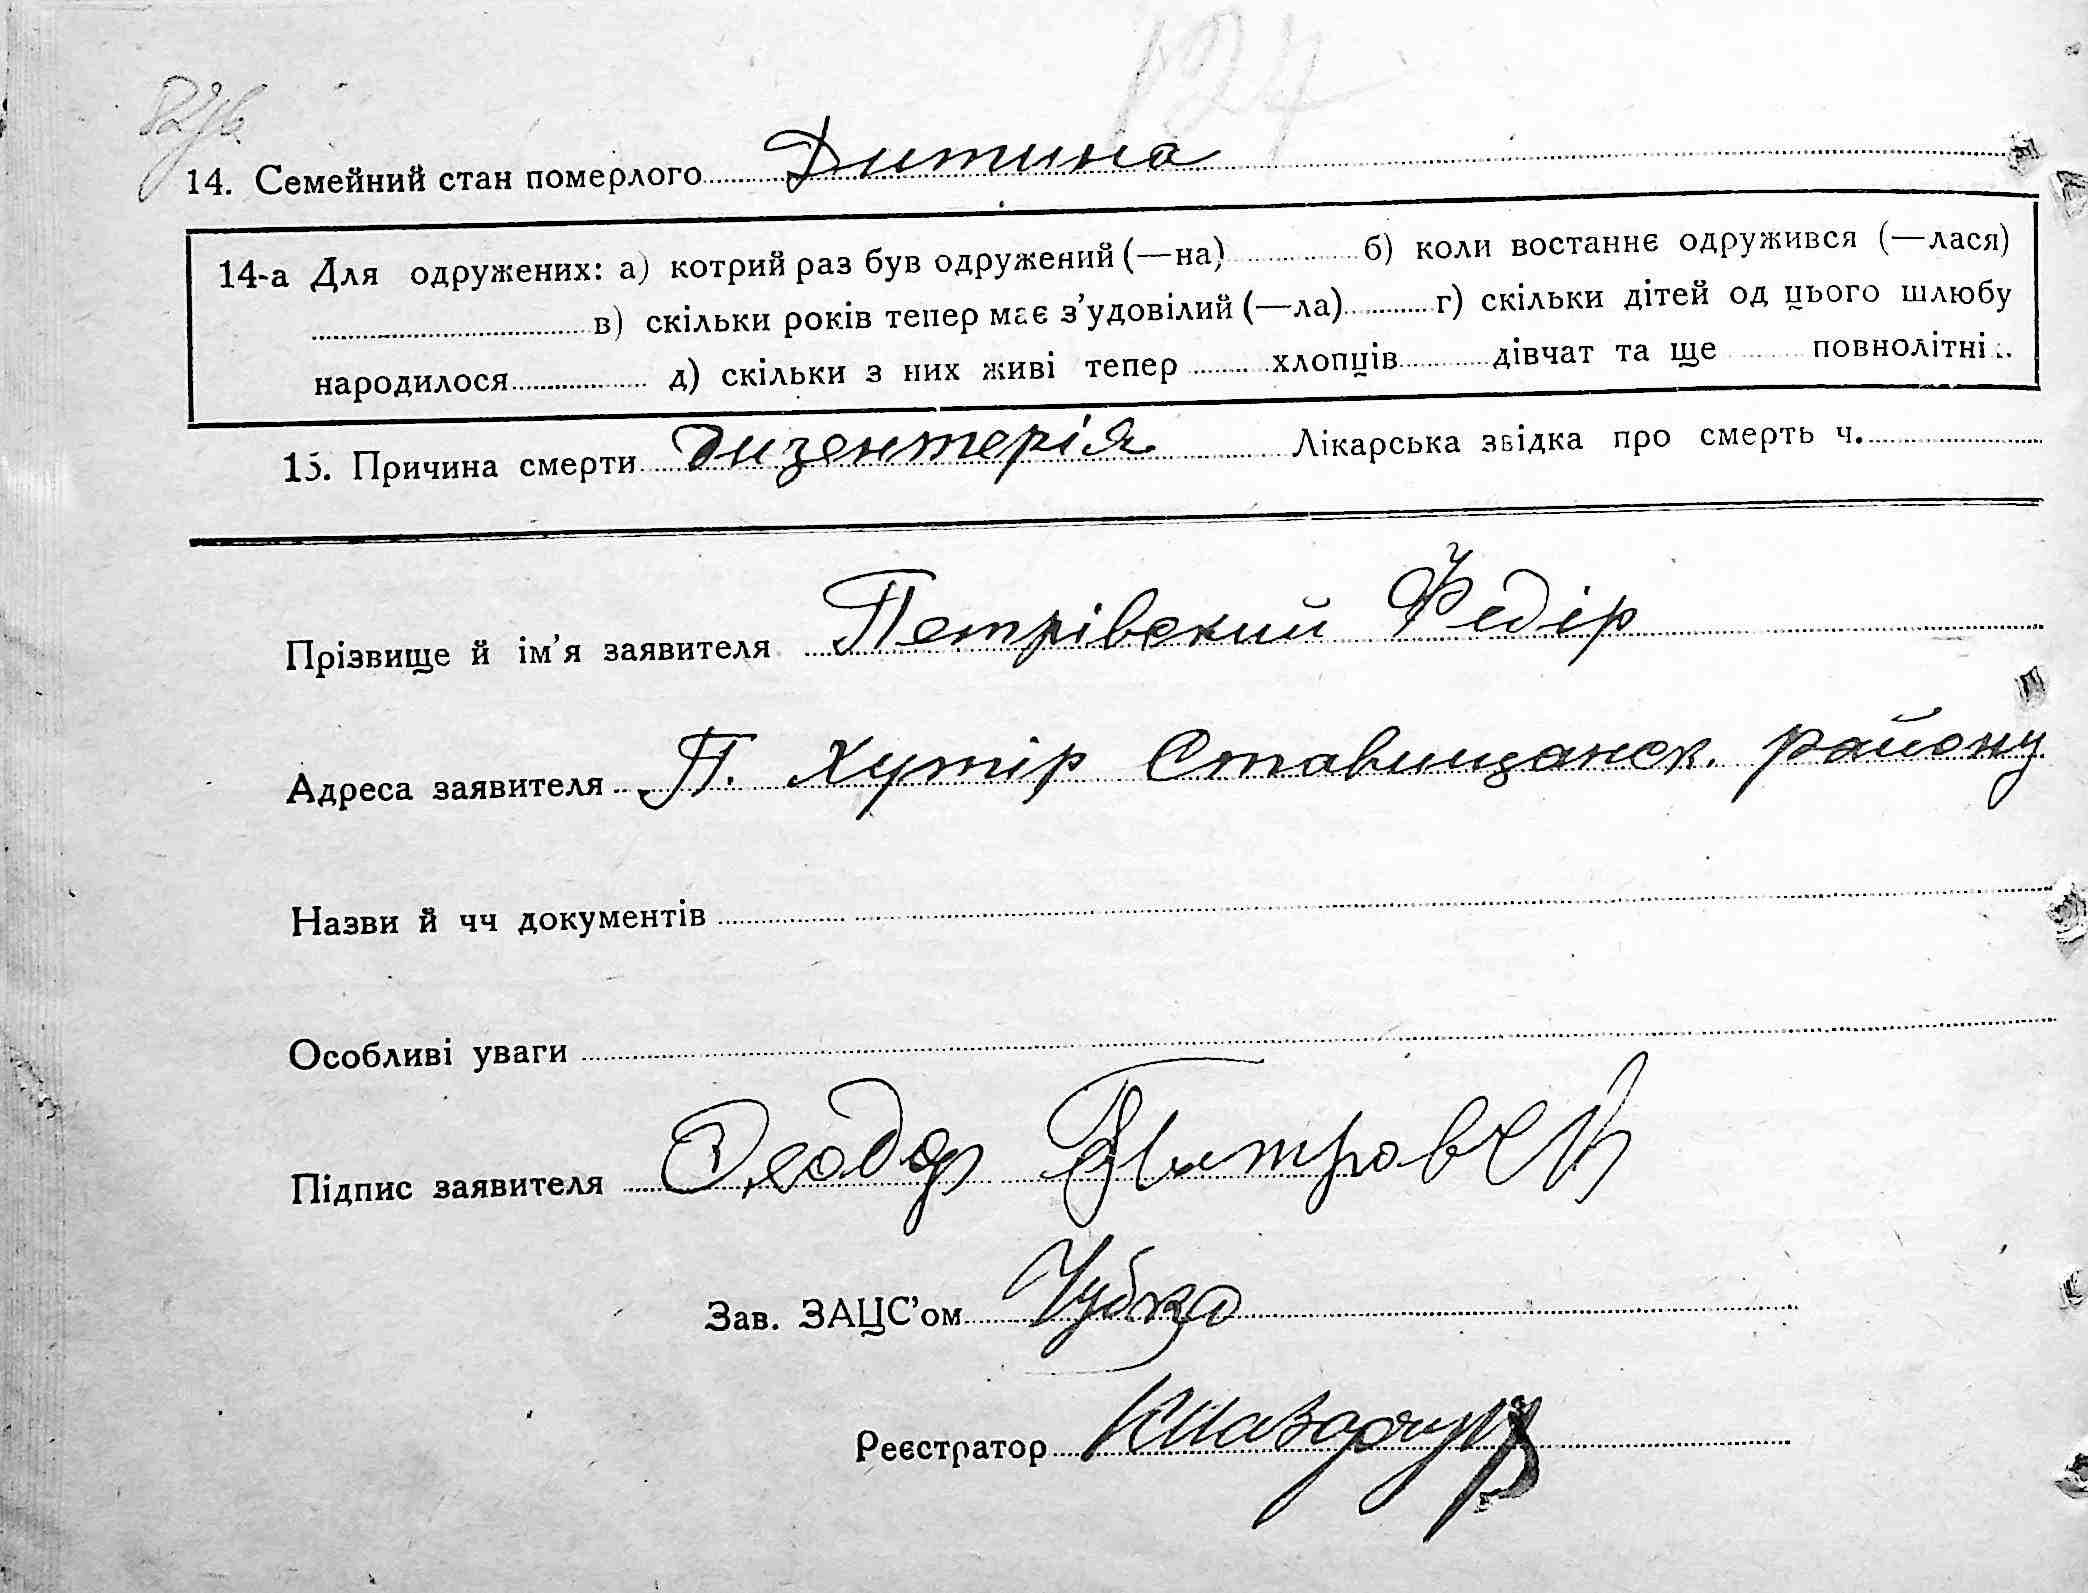 124
14. Семейний стан померлого Дитина
14-а Для одружених: а) котрий раз був одружений (—на) б) коли востаннє одружився (—лася)
в) скільки років тепер має з’удовілий (—ла) г) скільки дітей од цього шлюбу
народилося д) скільки з них живі тепер хлопців дівчат та ще повнолітні
15. Причина смерти дизентерія Лікарська звідка про смерть ч.
Прізвище й ім’я заявителя Петрівский Федір
Адреса заявителя П. Хутір Ставищанск. району
Назви й чч документів
Особливі уваги
Підпис заявителя Теодор
Зав. ЗАЦС’ом
Реєстратор